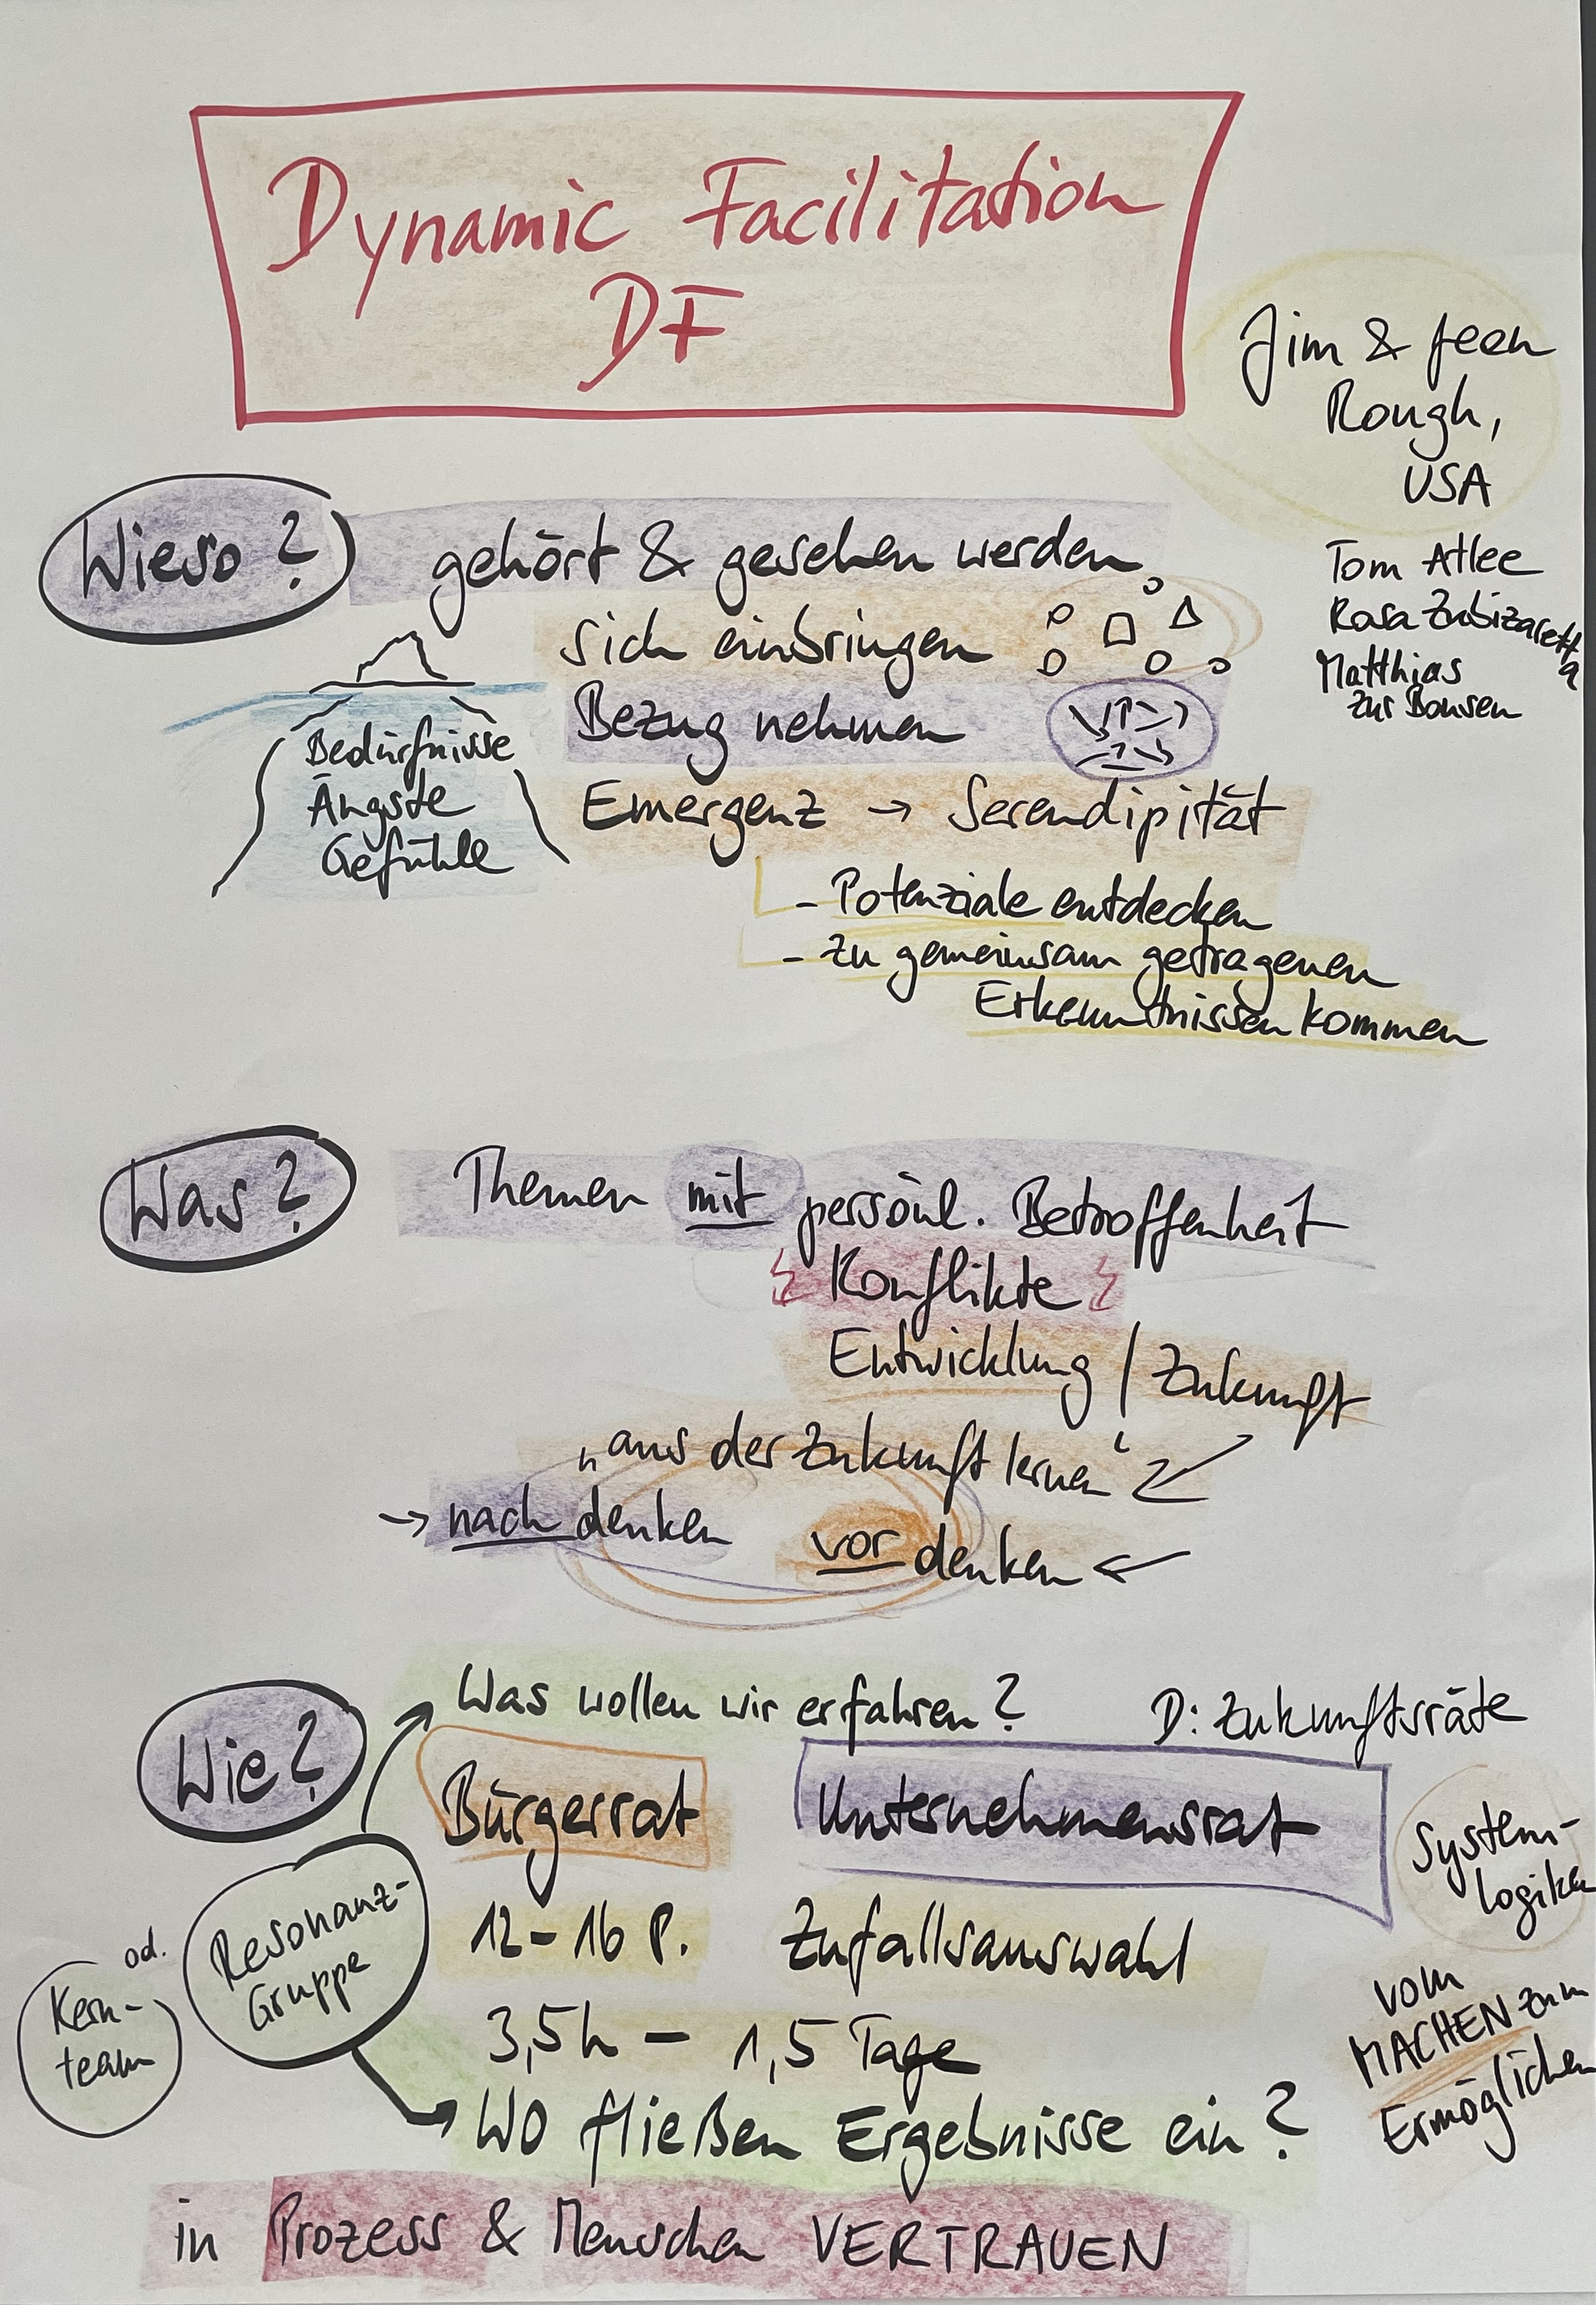 Dynamic Facilitation
DF
Jim & Jeen
Rough,
USA
Tom Atlee
Rosa Zubizaretta
Matthias
zur Bonsen
Wieso?
gehört & gesehen werden
sich einbringen
Bezug nehmen
Emergenz → Serendipität
- Potenziale entdecken
- zu gemeinsam getragenen
Erkenntnissen kommen
Bedürfnisse
Ängste
Gefühle
Was?
Themen mit persönl. Betroffenheit
Konflikte
Entwicklung / Zukunft
„aus der Zukunft lernen“
→ nach denken vor denken ←
Wie?
Was wollen wir erfahren?
D: Zukunftsräte
Bürgerrat
Unternehmensrat
System-
logiken
12-16 P. Zufallsauswahl
3,5h - 1,5 Tage
Resonanz-
Gruppe
od.
Kern-
team
vom
MACHEN zum
Ermöglichen
Wo fließen Ergebnisse ein?
in Prozess & Menschen VERTRAUEN